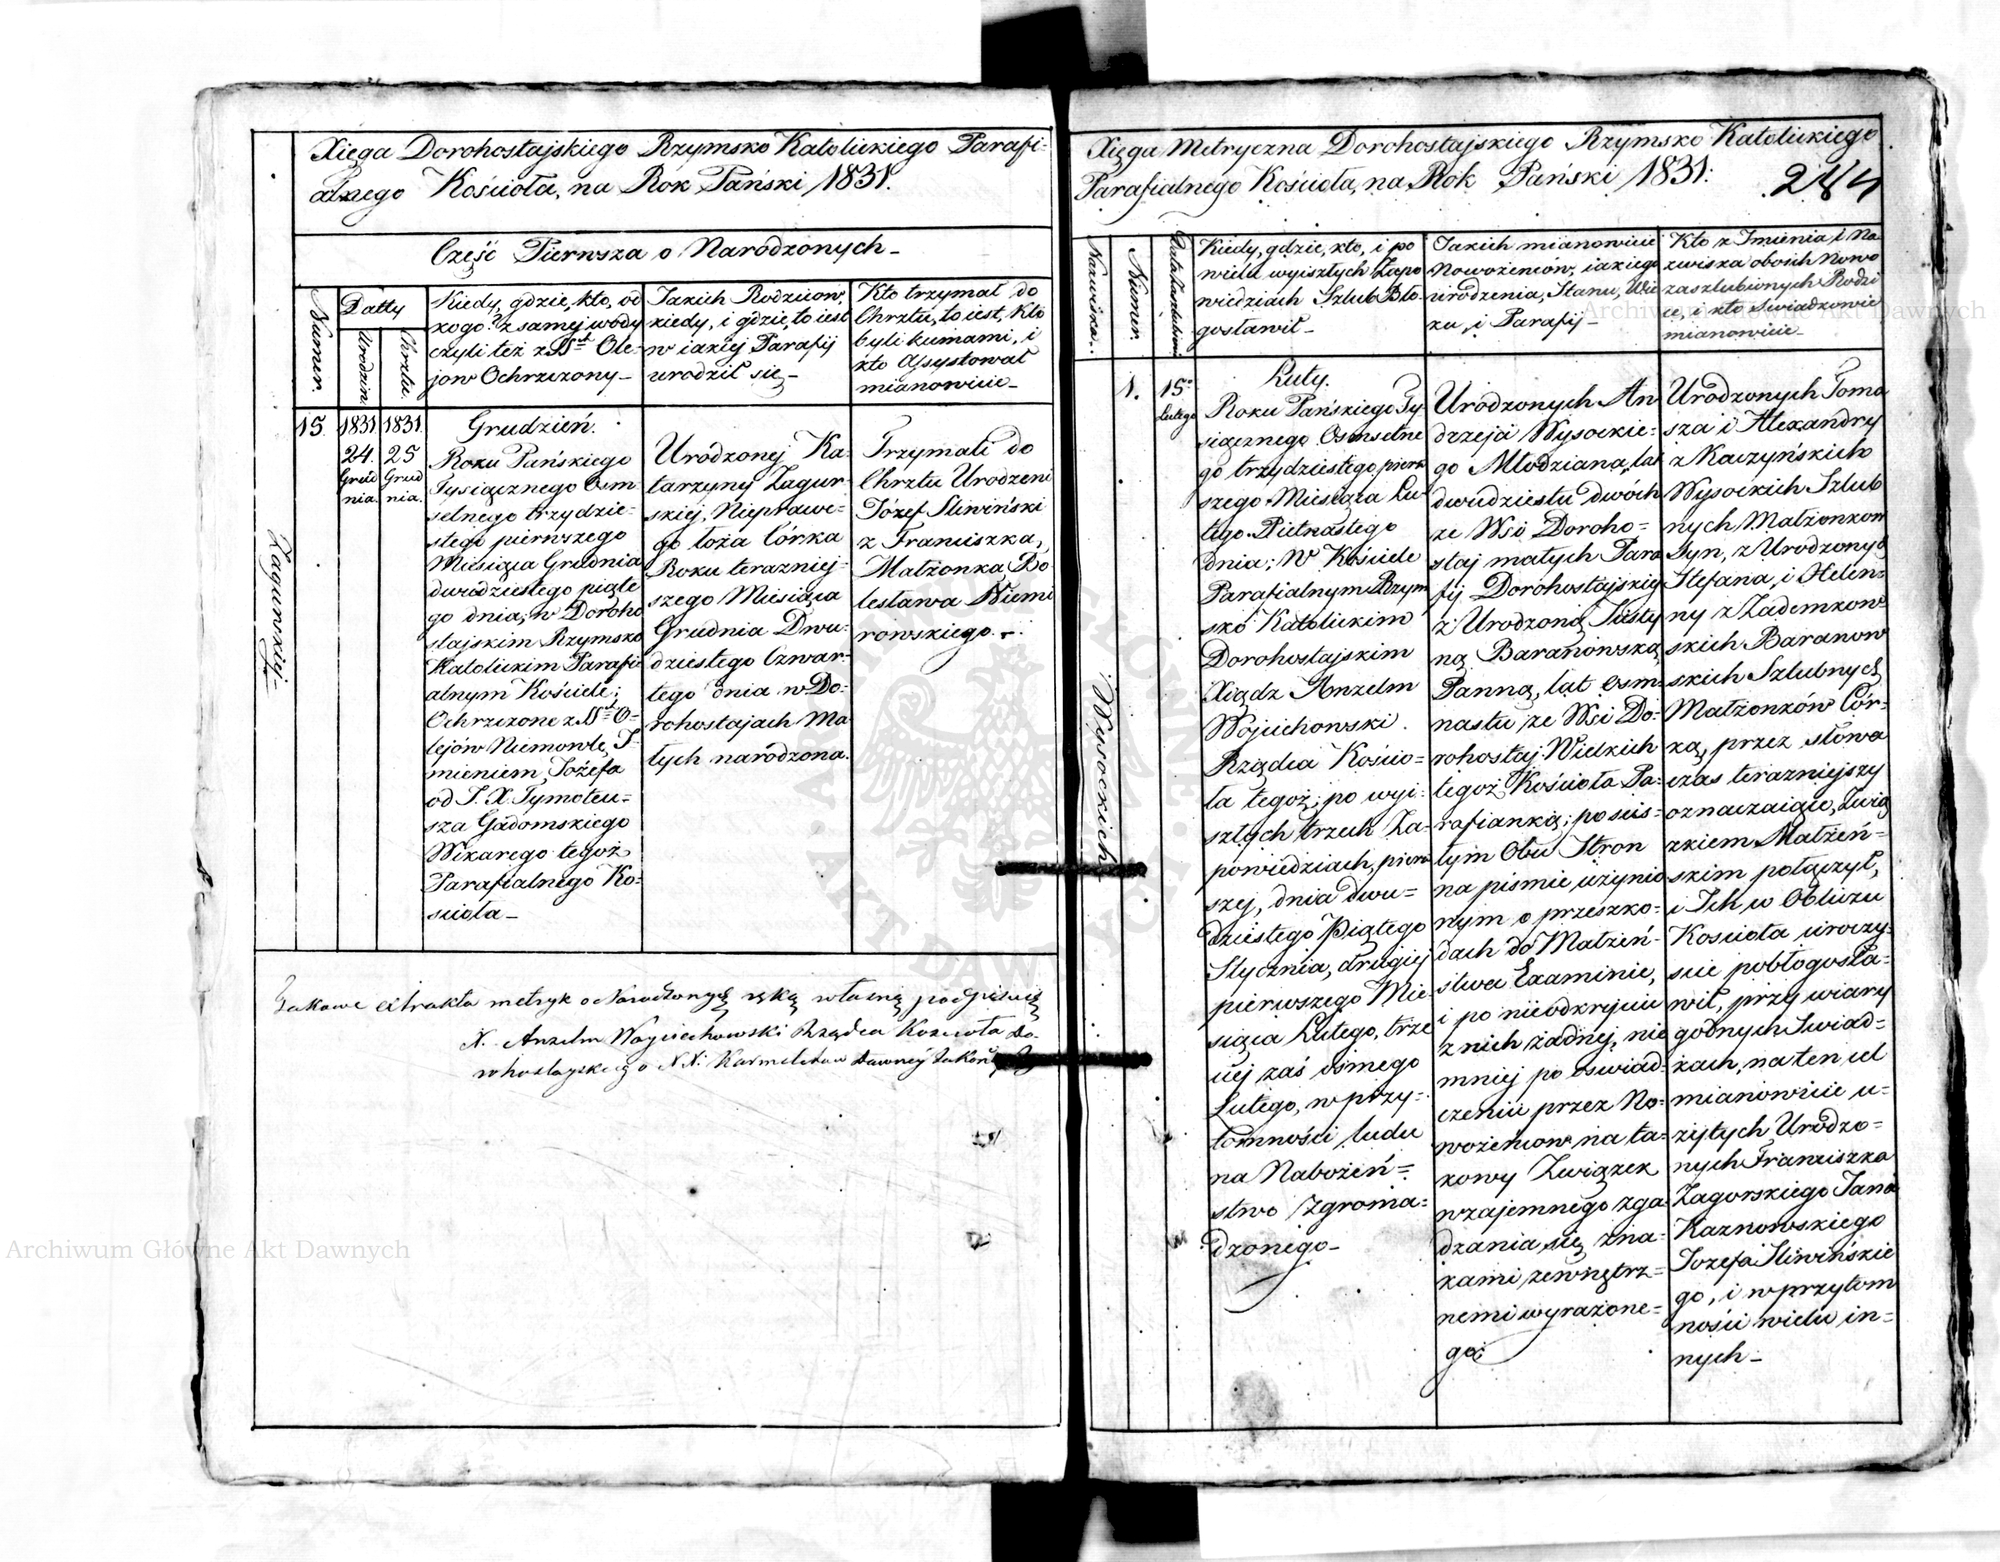 Xięga Dorohostajskiego Rzymsko Katolickiego Parafi-
alnego Kościoła, na Rok Pański 1831.
Część Pierwsza o Narodzonych
Numer.
Datty
Urodzin.
Chrztu.
Kiedy, gdzie, kto, od
kogo? z samej wody
czyli też z Stt Ole-
jow Ochrzczony
Jakich Rodziców,
kiedy, i gdzie, to iest
w iakiej Parafij
urodził się
Kto trzymał do
Chrztu, to iest, kto
byli kumami, i
kto Assystował
mianowicie
Zagurskiej
15.
1831
24.
Grud
nia.
1831.
25
Grud
nia.
Grudzień.
Roku Pańskiego
Tysiącznego Osm
setnego trzydzie-
stego pierwszego
Miesiąca Grudnia
dwódziestego piąte
go dnia, w Doroho
stajskim Rzymsko
Katolickim Parafi
alnym Kościele;
Ochrzczone z Stt O=
lejów Niemowlę, I-
mieniem, Jozefa
od J. X. Tymoteu=
sza Gadomskiego
Wikarego tegoż
Parafialnego Ko-
scioła
Urodzonej Ka-
tarzyny Zagur-
skiej, Nieprawe-
go łoża Córka
Roku teraźniej-
szego Miesiąca
Grudnia Dwu-
dziestego Czwar-
tego dnia w Do-
rohostajach Ma
łych narodzona.
Trzymali do
Chrztu Urodzeni
Józef Sliwiński
z Franciszką,
Małżonką Bo
lesława Niemi
rowskiego.
Takowe extrakta metryk o Narodzonych ręką własną podpisuię
X. Anzelm Woyciechowski Rządca Koscioła Do-
rohostayskiego XX. Karmelitow Dawney
Xięga Metryczna Dorohostajskiego Rzymsko Katolickiego
Parafialnego Kościoła, na Rok Pański 1831.
Nazwiska.
Numer.
Kiedy, gdzie, kto, i po
wielu wyiszłych Zapo
wiedziach Szlub Bło-
gosławił
Jakich mianowicie
Nowożeniów, iakiego
urodzenia, Stanu, Wie
ku, i Parafij
Kto z Imienia i Na
zwiska oboich Nowo
zaszlubionych Rodzi
ce, i kto Swiadkowie
mianowicie
Wysockich
1.
15.
Lutego
Luty.
Roku Pańskiego Ty-
siącznego Osmsetne
go trzydziestego pierw
szego Miesiąca Lu
tego Pietnastego
dnia; W Kościele
Parafialnym Rzym
skó Katolickim
Dorohostajskim
Xiądz Anzelm
Wojciechowski
Rządca Kościo=
ła tegoż; po wyi-
szłych trzech Za-
powiedziach, pierw
szej, dnia dwu=
dziestego Piątego
Stycznia, drugiej
pierwszego Mie-
siąca Lutego, trze
ciej zaś osmego
Lutego, w przy-
tomności ludu
na Nabożeń=
stwo Zgroma-
dzonego
Urodzonych An
drzeja Wysockie-
go Młodziana, lat
dwudziestu dwóch
ze Wsi Doroho=
staj małych Para
fij Dorohostajskiej
z Urodzoną Justy
ną Baranowską,
Panną, lat osm-
nastu, ze Wsi Do-
rohostaj Wielkich
tegoż Kościoła Pa-
rafianką; po scis-
łym Obu Stron
na pismie uzynio
nym o przeszko-
dach do Małżeń-
stwa Examinie,
i po nieodkryciu
z nich żadnej, nie
mniej po oswiad-
czeniu przez No-
wożeniow na ta-
kowy Związek
wzajemnego zga
dzania się, zna-
kami zewnętrz=
nemi wyrażone=
go
Urodzonych Toma
sza i Alexandry
z Kaczyńskich
Wysockich Szlub
nych Małżonkow
Syn, z Urodzonych
Stefana, i Helen-
ny z Zademkow
skich Baranow
skich Szlubnych
Małżonków Cór-
ką, przez słowa
czas teraźniejszy
oznaczaiące, Zwią
zkiem Małżeń-
skim połączył,
i Ich w Obliczu
Koscioła uroczy-
scie pobłogosła-
wił, przy wiary
godnych Swiad=
kach, na ten cel
mianowicie u-
żytych Urodzo=
nych Franciszka
Zagorskiego Jana
Kaznowskiego
Jozefa Sliwińskie
go, i w przytom
ności wielu in=
nych
Archiwum Główne Akt Dawnych
Archiwum Główne Akt Dawnych